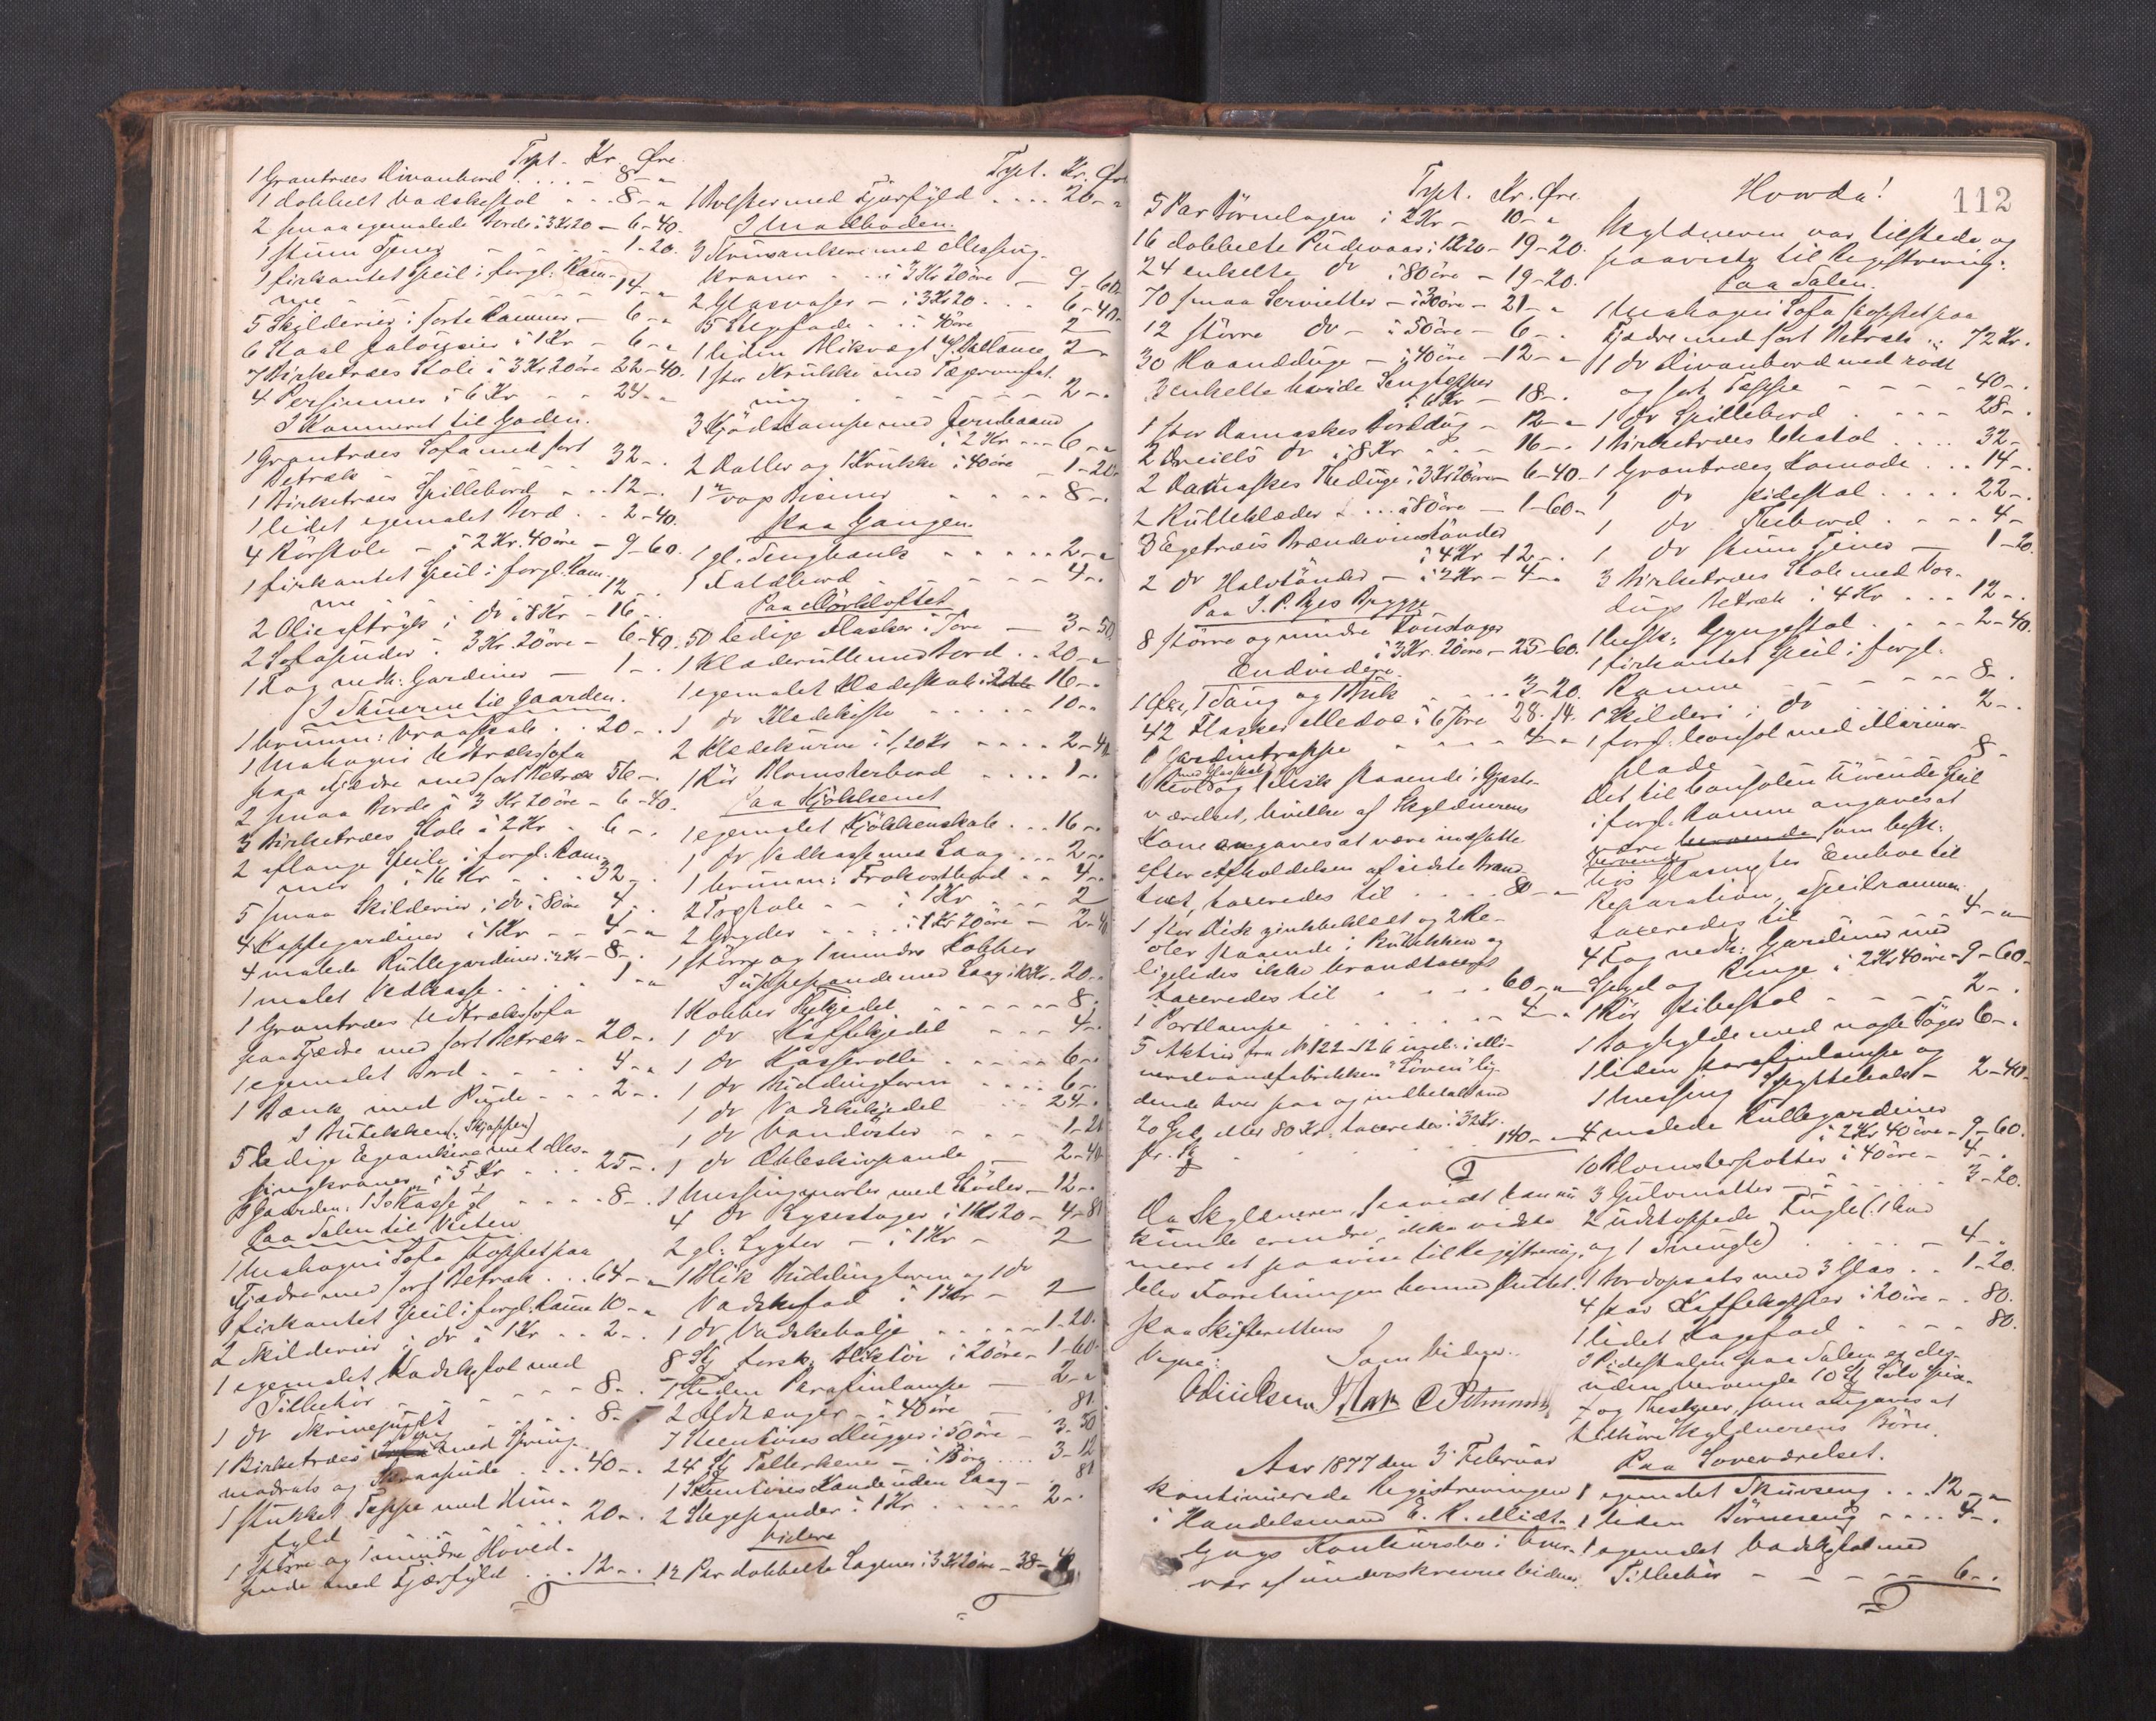 Trpt. Kr. Øre.
1 Grantræes Divanbord . . . . - 8 - "
1 dobbelt Vadskestol . . . 8 - "
2 smaa egemalede Borde à 3 Kr 20 - 6 - 40.
1 stum Tjener - - - - 1 - 20.
1 firkantet Speil i forgl: Ram-
me - - - - - - 14 - "
5 Skilderier i sorte Rammer - 6 - "
6 Staal Jalousier à 1 Kr - 6 - "
7 Birketræes Stole à 3 Kr 20 öre 22 - 40.
4 Persienner à 6 Kr - - 24 - "
I Kammeret til Gaden.
1 Grantræes Sofa med sort
Betræk - 32 - .
1 Birketræes Spillebord . . . 12 - .
1 lidet egemalet Bord . . 2 - 40.
4 Rörstole - à 2 Kr. 40 öre - 9 - 60.
1 firkantet Speil i forgl. Ram-
me - - - - 12 - .
2 Olietryk i do à 8 Kr - 16 - .
2 Sofapuder à 3 Kr. 20 öre - 6 - 40.
1 Fag redk: Gardiner - 1 - .
I Stuerne til Gaarden.
1 brunm: Vraaskab . . 20 - .
1 Mahogni Udtrækssofa
paa Fjædre med sort Betræk 56 - .
2 smaa Borde à 3 Kr 20 öre - 6 - 40.
3 Birketræes Stole à 2 Kr - 6 - .
2 aflange Speile i forgl. Ram-
mer à 16 Kr - - 32 - .
5 smaa Skilderier i do à 80 öre 4 - .
4 Kappegardiner à 1 Kr - - 4 - "
4 malede Rullegardiner à 2 Kr - 8 - .
1 malet Vedkasse . . . . 1 - "
1 Grantræes Udtrækssofa
paa Fjædre med sort Betræk - 20 - .
1 egemalet Bord . . . . . 4 - "
1 Bænk med Pude - - - 2 - .
5 ledige Egeankere med Mes-
singkraner à 5 Kr . . . 25 - .
Paa Salen til Vesten
1 Mahogni Sofa stoppet paa
Fjædre med sort Betræk . . . 64 - "
1 firkantet Speil i forgl. Ramme 10 - "
2 Skilderier i do à 1 Kr . . 2 - .
1 egemalet Vadskestol med
Tilbehör . . . . 8 - .
1 do Skrivepult . . . . 8 - .
1 Birketræes Seng med Spring-
madrats og Skraapude . . . . 40 - .
1 stukket Teppe med Dun-
fyld . . . 20 - .
1 större og 1 mindre Hoved-
pude med Fjærfyld . . . 12 - .
Trpt. Kr. Øre
1 Bolster med Fjærfyld . . . . 20 - "
I Madboden.
3 Kruvankere med Messing-
kraner . . . à 3 Kr 20 öre - 9 - 60.
2 Glasvaser - à 3 Kr 20 . . . 6 - 40.
5 Stegefade . . à 40 öre 2 -
1 liden Blikvægt m/ Ballance 2 -
1 stor Krukke med
- - - - - - 2 - .
3 Kjödstampe med Jernbaand
à 2 Kr - - - 6 - "
2 Daller og 1 Krukke à 40 öre - 1 - 20.
1 Bismer . . . . . 8 - .
Paa Gangen.
1 gl. Sengbænk . . . . . 2 - "
1 Faldbord - - - - - 4 - .
Paa Mörkloftet
50 ledige Flasker à 7 öre - 3 - 50.
1 Klæderulle med Bord . . 20 - "
1 egemalet Klædeskab 16 - "
1 do Klædekiste . . . . . 10 - "
2 Klædekurve à 1,20 Kr . . . . 2 - 40
1 Rör Blomsterbord . . . . 1 - .
Paa Kjökkenet
1 egemalet Kjökkenskab . . . 16 - .
1 do Vedkasse med Laag . . . 2 - .
1 brunm: Frokostbord . . 4 - .
2 Træstole - - à 1 Kr - - - 2
2 Gryder . . . . à 1 Kr 20 öre - 2 - 40
1 större og 1 mindre Kobber
Suppepande med Laag à 10 Kr. 20 - .
1 Kobber Fiskjedel . . . . . . 8 - .
1 do Kaffekjedel - - - - 4 - .
1 do Kasserolle . . . . . 6 - .
1 do Buddingform . . . . 6 - .
1 do Vadskekjedel . . 24 - .
1 do Vandöster - - - - 1 - 20
1 do Æbleskivepande - 2 - 40
1 Messingmorter med Stöder - 12 - .
4 do Lysestager à 1 Kr 20 - 4 - 80
2 gl: Lygter - à 1 Kr - 2
1 Blik Buddingform og 1 do
Vadskefad à 1 Kr - 2
1 do Vadskebalje . . . . . 1 - 20.
8 St forsk: Bliktöi à 20 öre - 1 - 60.
1 liden Parafinlampe - 2 - "
2 Ildtænger - à 40 öre - . 80
7 Steentöies Mugger à 50 öre - 3. 50
24 St Tallerkener - à 13 öre . . . 3 - 12
1 Steentöies Kande uden Laag - . 80
2 Stegepander à 1 Kr . . . . . 2 - .
Videre
12 Par dobbelte Lagener à 3 Kr 20 öre - 38 - 40
Trpt. Kr. Øre.
5 Par Börnelagen à 2 Kr - 10 - "
16 dobbelte Pudevaar à 1 Kr 20 - 19 - 20.
24 enkelte do à 80 öre - 19 - 20.
70 smaa Servietter - à 30 öre - 21 - "
12 större do - à 50 öre - 6 - .
30 Haandduge - à 40 öre - 12 - "
3 enkelte hvide Sengtepper
à 6 Kr - 18 - .
1 stor Damaskes Borddug - 12 - "
2 Dreiels do à 8 Kr . . . 16 - .
2 Damaskes Theduge à 3 Kr 20 öre - 6 - 40.
2 Rulleklæder . . . . à 80 öre - 1 - 60.
3 Egetræes Brændevinstönder
à 4 Kr - 12 - .
2 do Halvtönder - à 2 Kr - 4 - .
Paa I. P. Byes Brygge
8 större og mindre Tönstager
à 3 Kr. 20 öre - 25 - 60.
Endvidere
1 Öxe, 1 Tang og 1 Brik . . . . . 3 - 20.
42 Flasker Medoc à 67 öre 28. 14.
1 Gardintrappe - - - - - 4 - "
med Glasskab
1 Reol og 1 Disk staaende i Gjæste-
værelset, hvilke af Skyldnerens
Kone angaves at være indsatte
efter Afholdelsen af sidste Brand-
taxt, taxeredes til . . . . 80 - "
1 stor Disk zinkbeklædt og 2 Re-
oler staaende i Butikken og
ligeledes ikke brandtaxeret
taxeredes til - - - - 60 - "
1 Portlampe . . . . . . . 4 - "
5 Aktier fra No 122 - 126 incl. i Mi-
neralvandfabrikken "Löven" ly-
dende hver paa og indbetalt med
20 Spd eller 80 Kr. taxeredes à 32 Kr.
pr. St . . . . . . . . 140 - "
Da Skyldneren, saavidt han nu
kunde erindre, ikke vidste
mere at paavise til Registrering,
blev Forretningen herme sluttet.
Paa Skifterettens
Vegne:
Som Vidner
Aar 1877 den 3 Februar
kontinuerede Registreringen
i Handelsmand E. R. Midt-
bygs Konkursbo i Over-
vær af underskrevne Vidner.
112
Hvorda!
Skyldneren var tilstede og
paaviste til Registrering:
Paa Salen.
1 Mahogni Sofa stoppet paa
Fjædre med sort Betræk . . 72 Kr.
1 do Divanbord med rödt
og sort Teppe - - - - - 40 - .
1 do Spillebord . . . . 28 - .
1 Birketræes Chatol . . . . 32 - .
1 Grantræes Komode . . . 14 - .
1 do Pidestal . . . . 22 - .
1 do Thebord . - - - 4 -
1 do stum Tjener - 1 - 20
3 Birketræes Stole med Vox-
dugs Betræk à 4 Kr . . . 12 - .
1 besk: Gyngestol . . . . . 2 - 40.
1 firkantet Speil i forgl.
Ramme - - - - - - 8 - .
1 Skilderi i do . . . . . 2 - .
1 forgl. Consol med Marmor-
plade . . . . . . . . 8 -
Det til Consolen hörende Speil
i forgl. Ramme angaves at
være beroende som besk:
beroende
hos Glasmester Enehoe til
Reparation, Speilrammen
taxeredes til . . . . . . . 4 - "
4 Fag nedk: Gardiner med
Spyd og Ringe à 2 Kr 40 öre - 9 - 60.
1 Rör Pibestol - - - - - 2 - .
1 Boghylde med nogle Böger 6 - .
1 liden Parafinlampe og
1 Messing Spyttebak - 2 - 40.
4 malede Rullegardiner
à 2 Kr 40 öre - 9 - 60.
10 Blomsterpotter à 40 öre - 4 - .
3 Gulvmatter - - - - - - 3 - 20.
2 udstoppede Fugle (1
og 1 ) . . . . . - 4 - .
1 Bordopsats med 3 Glas . . 1 - 20.
4 par Kaffekopper à 20 öre - . 80.
1 lidet Kagefad . . . . . . 80.
I Pidestalen paa Salen er des-
uden beroende 10 St Sölv Spise-
og Theskeer, som angaves at
tilhöre Skyldnerens Börn.
Paa Soveværelset.
1 egemalet Skuvseng . . . 12 - "
1 liden Börneseng . . . . 4 - .
1 egemalet Vadskestol med
Tilbehör - - - - - - 6 - .